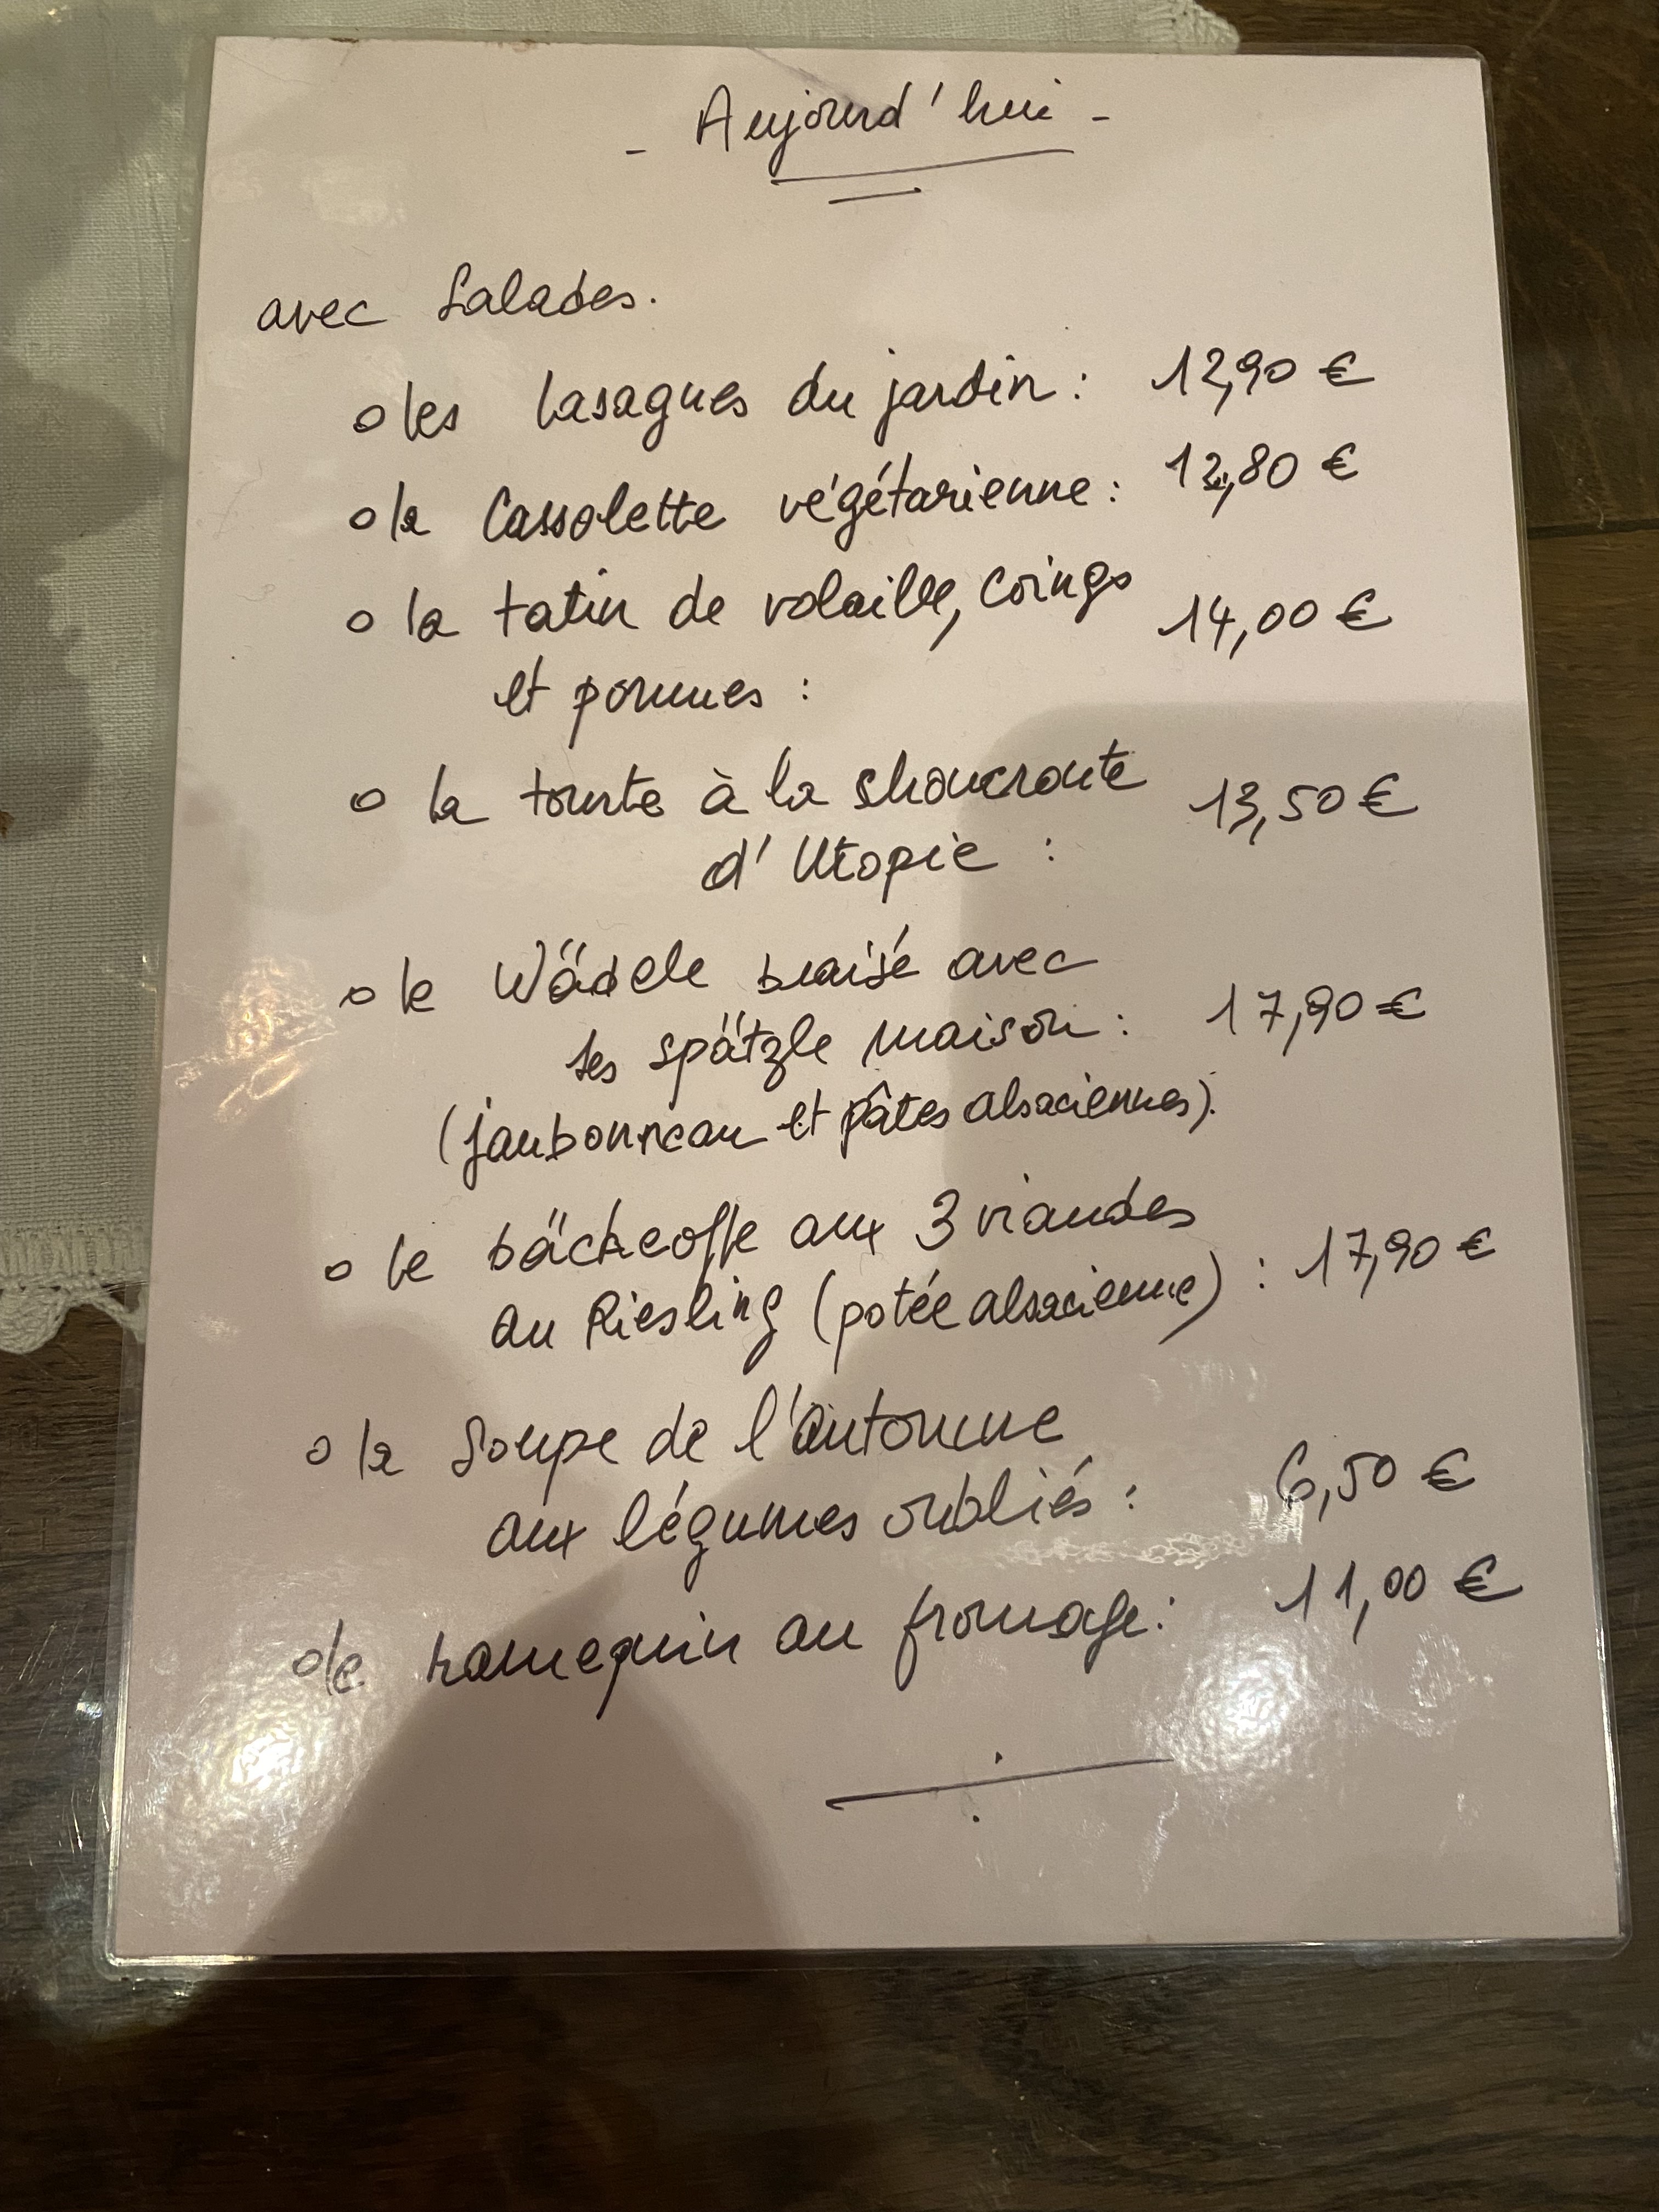 - Aujourd'hui -
avec Salades.
o les lasagnes du jardin : 12,90 €
o la Cassolette végétarienne : 12,80 €
o la tatin de volaille, Coings
et pommes : 14,00 €
o la tourte à la shoucroute
d'Utopie : 13,50 €
o le Wädele braisé avec
ses spätzle maison : 17,90 €
(jambonneau et pâtes alsaciennes).
o le bäckeoffe aux 3 viandes
au Riesling (potée alsacienne) : 17,90 €
o la Soupe de l'automne
aux légumes oubliés : 6,50 €
o le ramequin au fromage : 11,00 €